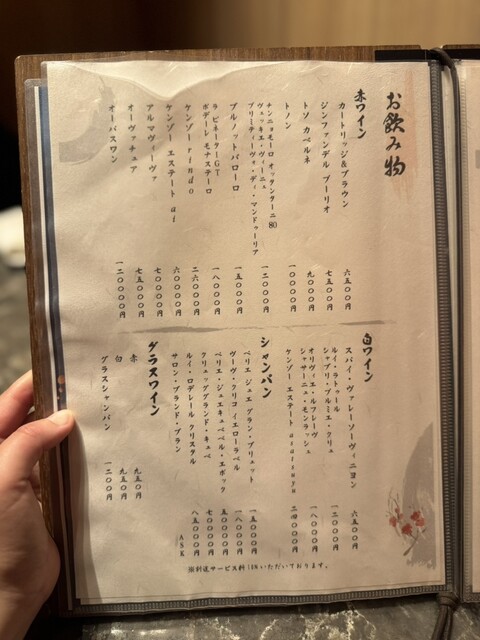 お飲み物
赤ワイン
カートリッジ&ブラウン 六五〇〇円
ジンファンデル ブーリオ 七五〇〇円
トソ カベルネ 九〇〇〇円
トノン 一〇〇〇〇円
チンニョモーロ オッタンターニ 80
ヴェッキエ・ヴィーニュ
プリミティーヴォ・ディ・マンドゥーリア 一二〇〇〇円
ブルノットバローロ 一五〇〇〇円
ラピネーターGT
ボデーレ モナステーロ 一八〇〇〇円
ケンゾー rindo 二六〇〇〇円
ケンゾー エステート ai 六〇〇〇〇円
アルマヴィーヴァ 七〇〇〇〇円
オーヴァチュア 七五〇〇〇円
オーパスワン 一二〇〇〇〇円
白ワイン
スパイ・ヴァレーソーヴィニヨン 六五〇〇円
ルイ・ラトゥール
シャブリ・プルミエ・クリュ 一二〇〇〇円
オリヴィエ・ルフレーヴ
シャサーニュ・モンラシェ 一八〇〇〇円
ケンゾー エステート asatsuyu 二四〇〇〇円
シャンパン
ペリエ ジュエ グラン・ブリュット 一五〇〇〇円
ヴーヴ・クリコ イエローラベル 一八〇〇〇円
ペリエ・ジュエ キュベベル・エポック 五〇〇〇〇円
クリュッグ グランド・キュベ 七〇〇〇〇円
ルイ・ロデレール クリスタル 八五〇〇〇円
サロン・ブランド・ブラン ASK
グラスワイン
赤 九五〇円
白 九五〇円
グラスシャンパン 一二〇〇円
※別途サービス料10%いただいております。